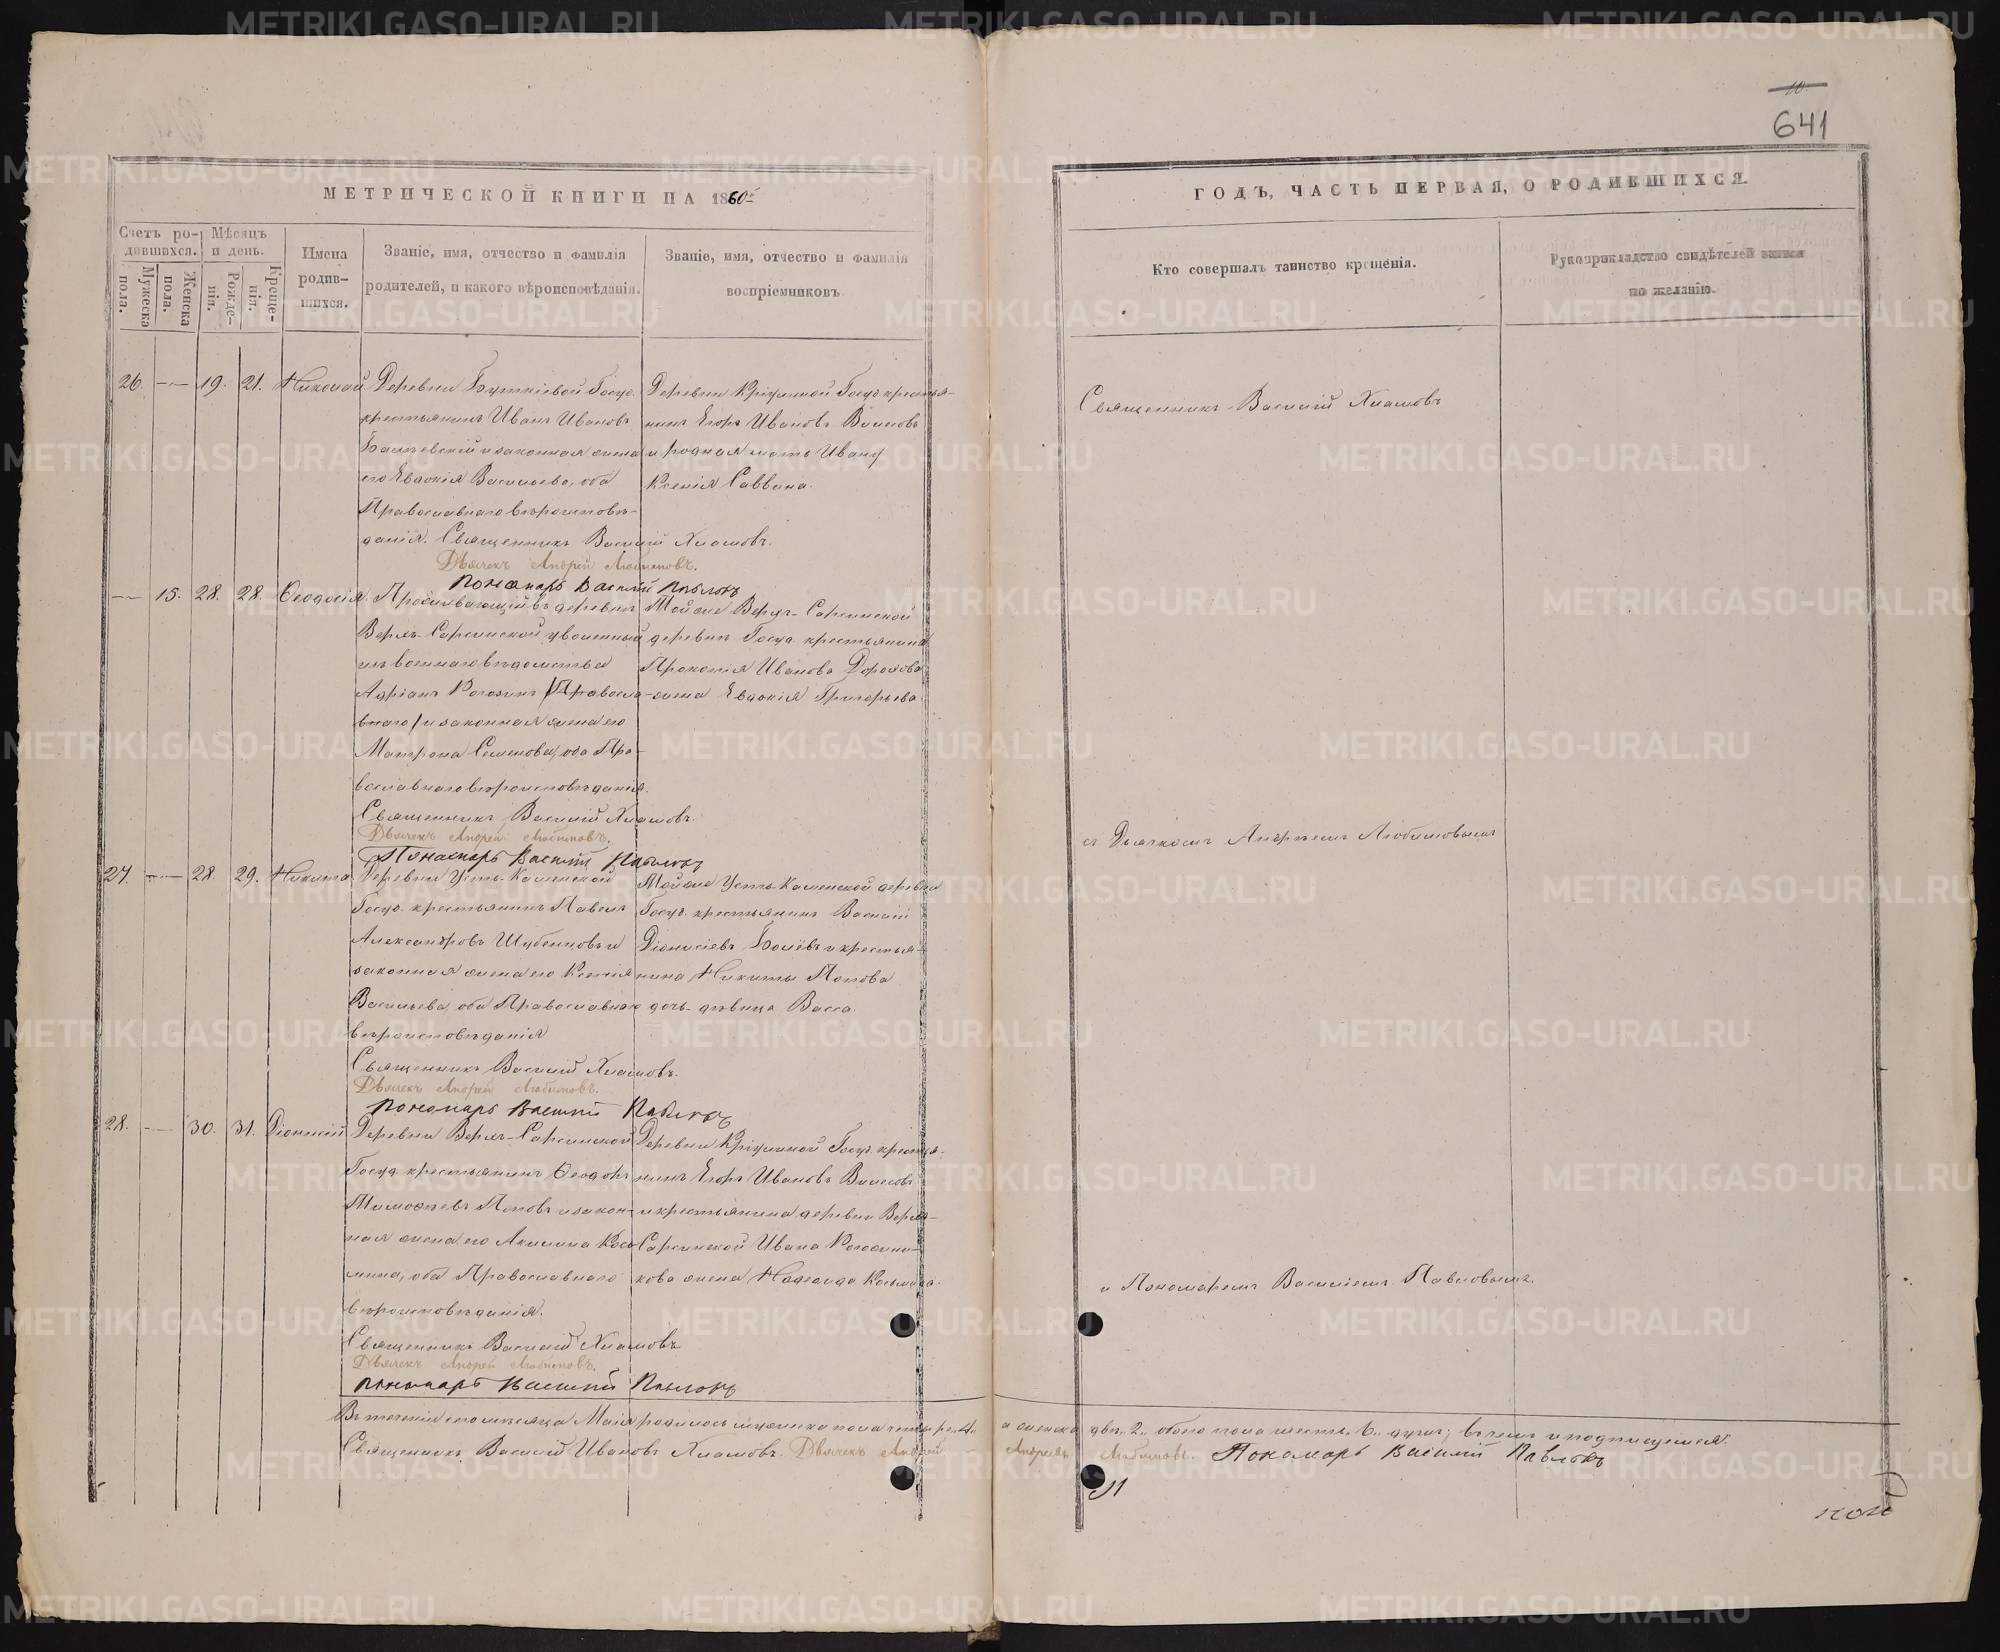 10.
641
МЕТРИЧЕСКОЙ КНИГИ НА 1860й
ГОДЪ, ЧАСТЬ ПЕРВАЯ, О РОДИВШИХСЯ.
Счетъ родившихся.
Мужеска пола.
Женска пола.
Мѣсяцъ и день.
Рожденія.
Крещенія.
Имена родившихся.
Званіе, имя, отчество и фамилія родителей, и какого вѣроисповѣданія.
Званіе, имя, отчество и фамилія воспріемниковъ.
Кто совершалъ таинство крещенія.
Рукоприкладство свидѣтелей записи по желанію.
26. — 19. 21. Николай.
Деревни Госуд.
крестьянинъ Иванъ Ивановъ
и законная жена
его Евдокія Васильева, оба
Православнаго вѣроисповѣ-
данія. Священникъ Василій Хламовъ.
Дьячекъ Андрей Любимовъ.
Пономарь Василій Павловъ
Деревни Госуд. крестья-
нинъ Егоръ Ивановъ
и родная мать Ивану
Ксенія Саввина.
Священникъ Василій Хламовъ
— 15. 28. 28. Ѳеодосія.
Проживающій въ деревнѣ
Верхъ-Сарсинской уволенный
изъ военнаго вѣдомства
Адріанъ Рогожинъ /Правосла-
внаго/ и законная жена его
Матрона Семенова, оба Пра-
вославнаго вѣроисповѣданія.
Священникъ Василій Хламовъ.
Дьячекъ Андрей Любимовъ.
Пономарь Василій Павловъ
Той же Верхъ-Сарсинской
деревни Госуд. крестьянина
Прокопія Иванова
жена Евдокія Григорьева.
съ Дьячкомъ Андреемъ Любимовымъ
27. — 28. 29. Никита.
Деревни Усть-Каменской
Госуд. крестьянинъ Павелъ
Александровъ Шубенцовъ и
законная жена его Ксенія
Васильева, оба Православнаго
вѣроисповѣданія
Священникъ Василій Хламовъ.
Дьячекъ Андрей Любимовъ.
Пономарь Василій Павловъ
Той же Усть-Каменской деревни
Госуд. крестьянинъ Василій
Діонисіевъ и крестья-
нина Никиты Попова
дочь-дѣвица Васса.
28. — 30. 31. Діонисій
Деревни Верхъ-Сарсинской
Госуд. крестьянинъ Ѳеодоръ
Тимоѳеевъ Поповъ и закон-
ная жена его Акилина Козь-
мина, оба Православнаго
вѣроисповѣданія.
Священникъ Василій Хламовъ
Дьячекъ Андрей Любимовъ.
Пономарь Василій Павловъ
Деревни Госуд. крестья-
нинъ Егоръ Ивановъ
и крестьянина деревни Верхъ-
Сарсинской Ивана Рогожни-
кова жена Надежда Козьмина.
и Пономаремъ Василіемъ Павловымъ.
Въ теченіи сего мѣсяца Маія родилось мужеска пола четыре „4„ а женска двѣ „2„ обоего пола шесть „6„ душъ; въ чемъ и подписуемся.
Священникъ Василій Ивановъ Хламовъ. Дьячекъ Андрей Андреевъ Любимовъ. Пономарь Василій Павловъ